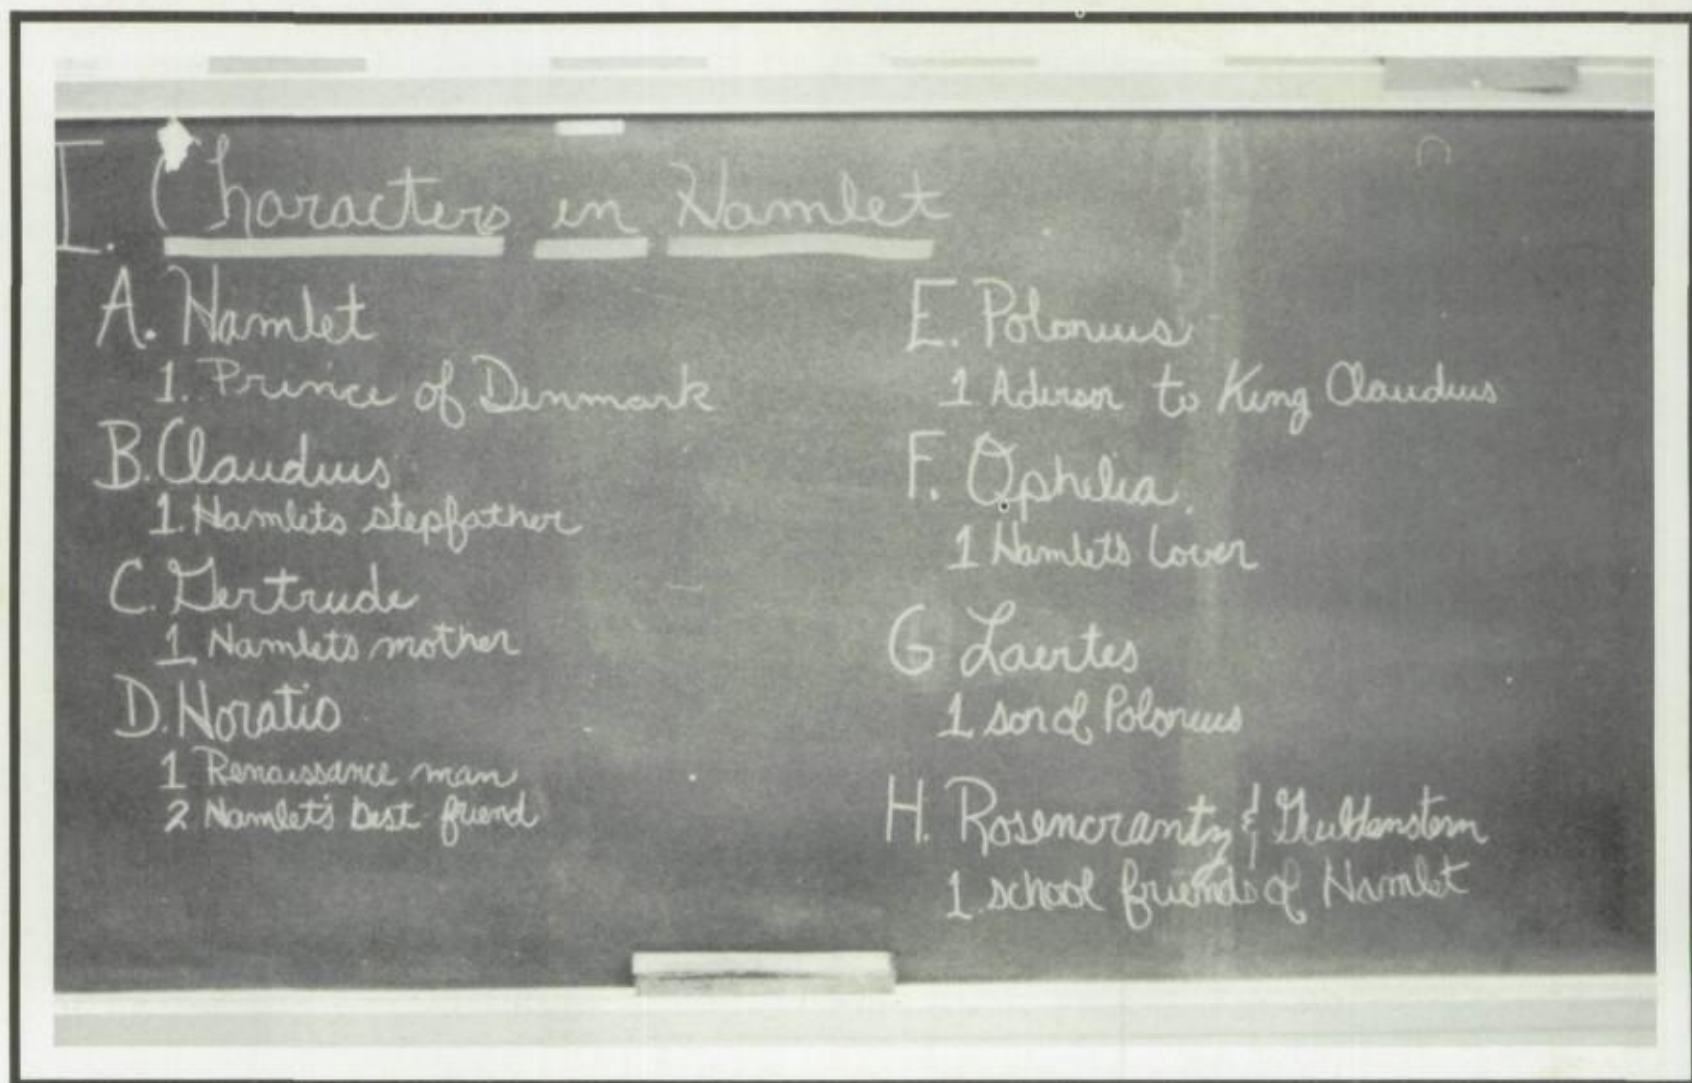 I. Characters in Hamlet
A. Hamlet
1. Prince of Denmark
B. Claudius
1. Hamlets stepfather
C. Gertrude
1 Hamlet's mother
D. Horatio
1 Renaissance man
2 Hamlet's best friend
E. Polonius
1 Advisor to King Claudius
F. Ophelia
1 Hamlet's lover
G Laertes
1 son of Polonius
H. Rosencrantz & Guildenstern
1. school friends of Hamlet